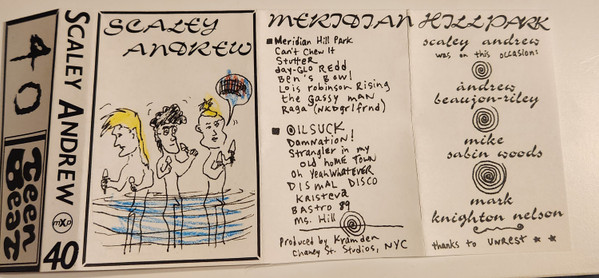 40
Teen
Beat
SCALEY ANDREW
mxo
40
SCALEY
ANDREW
MERIDIAN HILL PARK
Meridian Hill Park
Can't Chew It
Stutter
day-Glo Redd
Ben's Bowl
Lois robinson Rising
the Gassy man
Raga (Nkdgrlfrnd)
OILSUCK
Damnation!
Strangler in my
old home Town
oh YeahWHATEVER
DISMAL DISCO
Kristeva
BASTRO 89
Ms. Hill
Produced by Kramden
Chaney St. Studios, NYC
scaley andrew
was on this occasion:
andrew
beaujon-riley
mike
sabin woods
mark
knighton nelson
thanks to UNREST